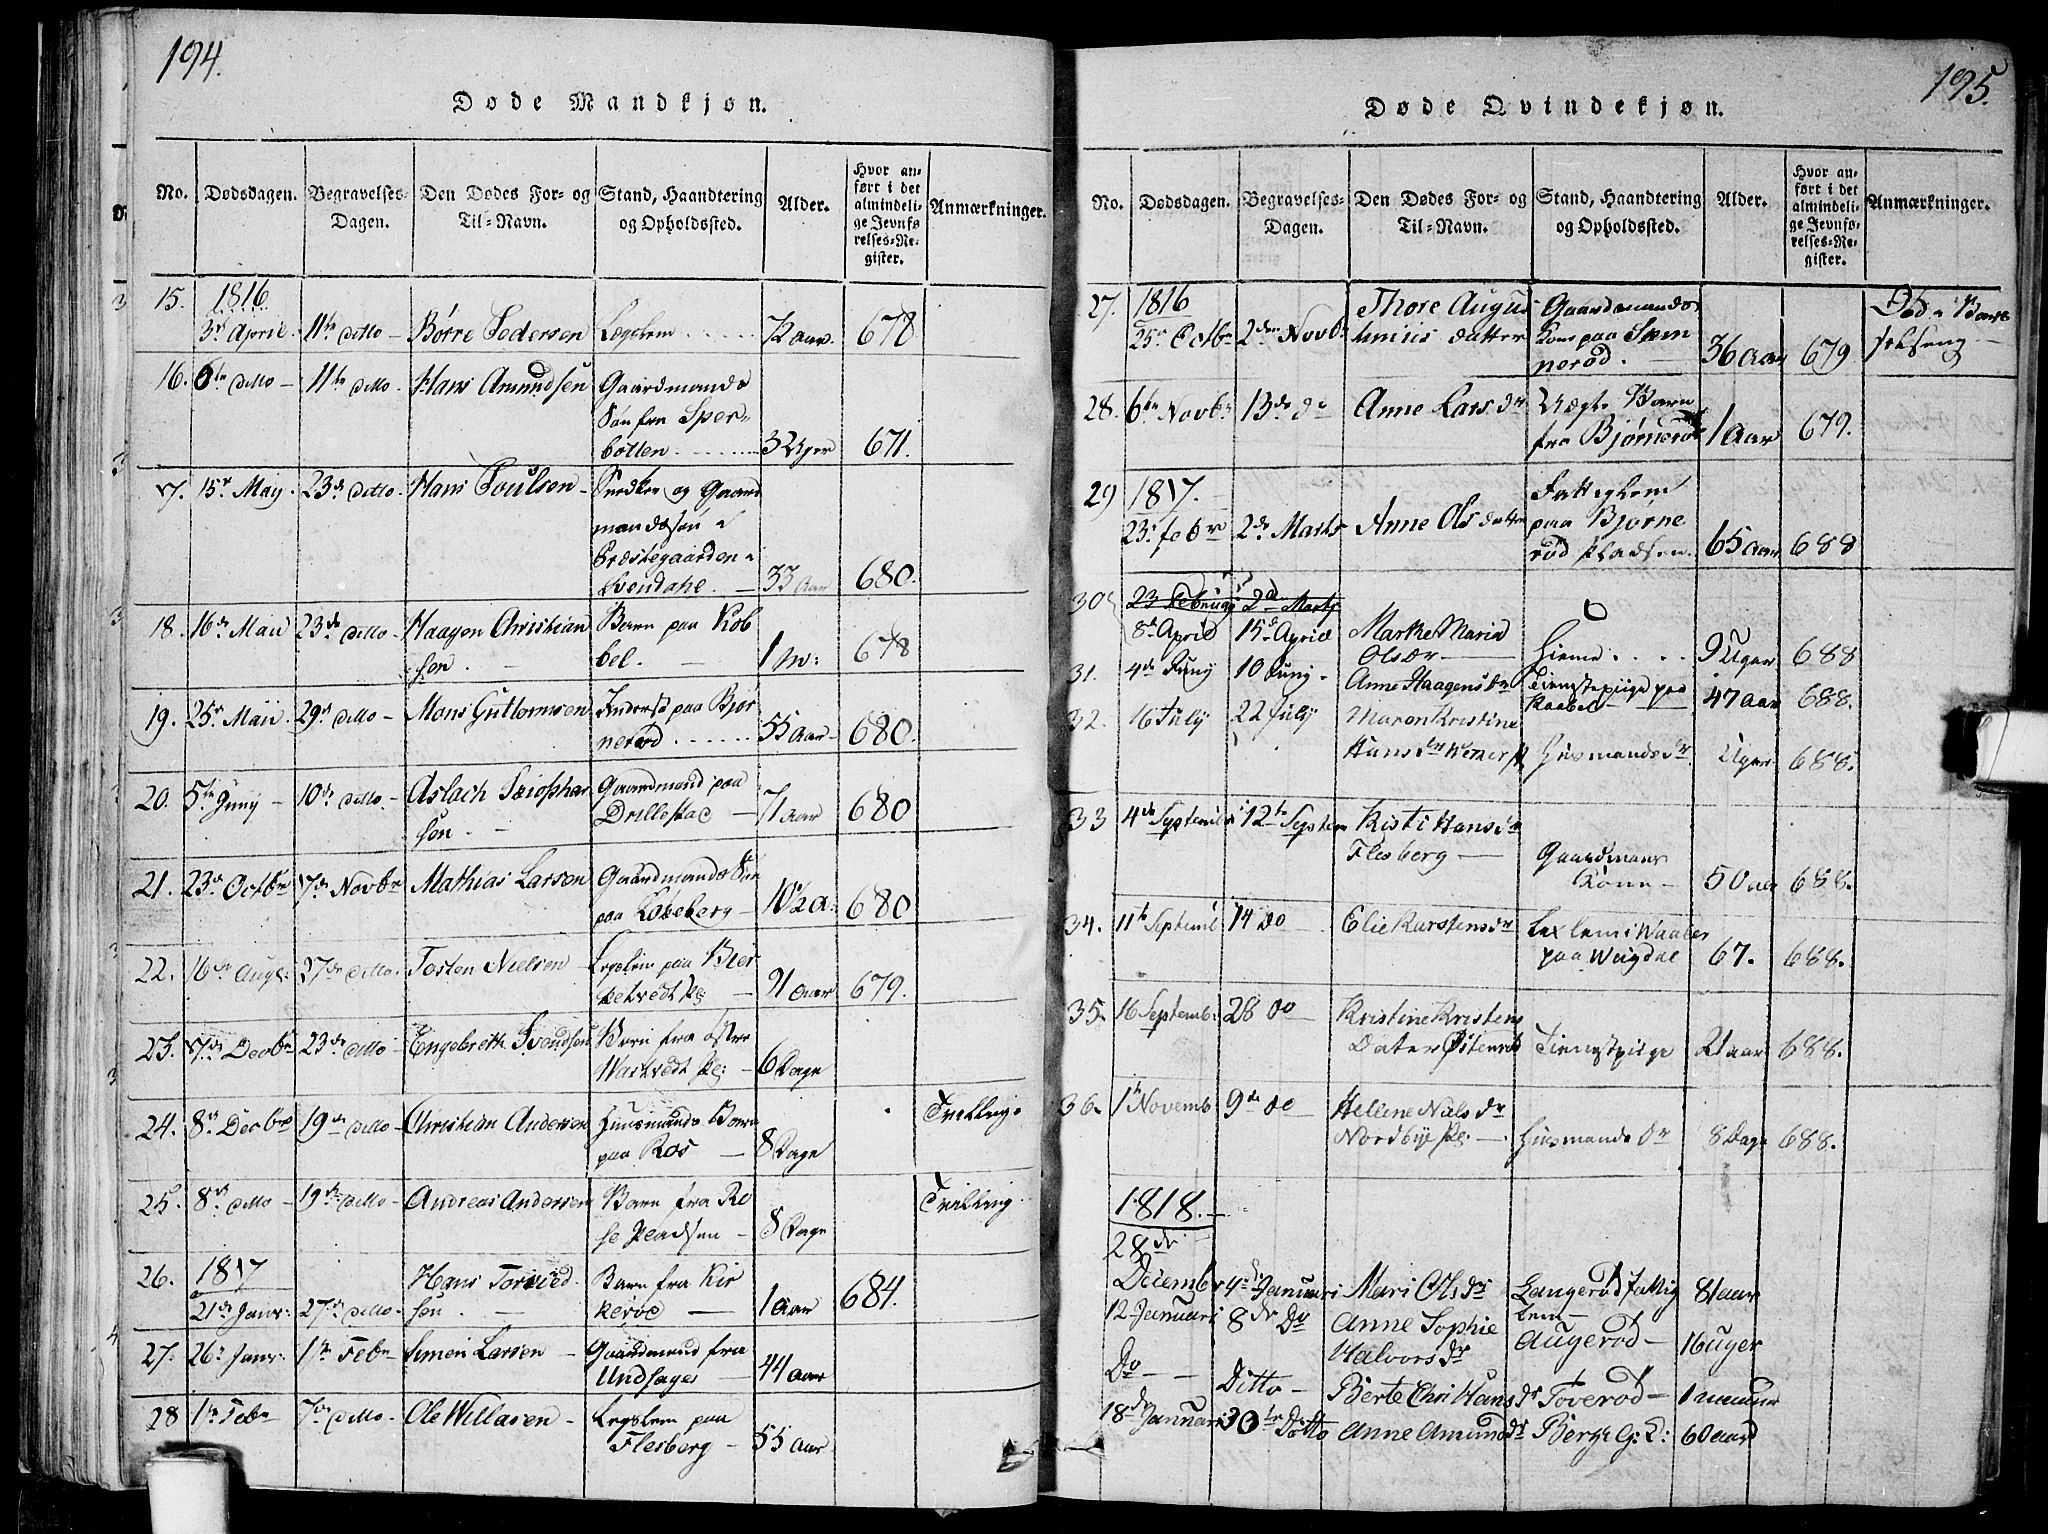 194.
Døde Mandkjøn.
No. Dødsdagen. Begravelses-Dagen. Den Dødes For- og Til-Navn. Stand, Haandtering og Opholdssted. Alder. Hvor anført i det almindelige Jevnførelses-Register. Anmærkninger.
15. 1816
3die April. 11te ditto Børre Pedersen Legslem 72 aar 678
16. 6te ditto 11te ditto Hans Amundsen Gaardmands
Søn fra Sper-
botten 3 Uger 671.
17. 15de May. 23de ditto Hans Poulsen Snedker og Gaard
mandssøn
Præstegaarden
33 Aar 680.
18. 16de Maii 23de ditto Haagen Christian Barn paa Kob
sen. bel. 1 M: 678
19. 25de Maii 29de ditto Mons Guttormsen Inderst paa Bjør
nerød 55 aar 680.
20. 5te Juny 10de ditto Aslach Gaardmand paa
sen. Drillestad 71 aar 680
21. 23de Octbr 7de Novbr Mathias Larsen Gaardmands Søn
paa Løkeberg 10½ a: 680
22. 16de Aug: 27de ditto Tosten Nielsen Legslem paa Bier
ketvedt Pl: 91 aar 679.
23. 17de Decbr 23de ditto Engebreth Svendsen Barn fra østre
Wastvedt Pl: 6 Dage
24. 8de Decbr 19de ditto Christian Andersen Huusmands Barn Tvilling
paa Ros 8 Dage
25. 8de ditto 19de ditto Andreas Andersen Barn fra Ro Tvilling
se Pladsen 8 Dage
26. 1817 Hans Torvild Barn fra Kir
21de Janr: 27de ditto sen. kerød 1 aar 684.
27. 26de Janr: 1ste Febr Simen Larsen Gaardmand fra
Undsages 44 aar
28 1ste Febr 7de ditto Ole Willasen Legslem paa
Flesberg 55 aar
195.
Døde Qvindekjøn.
No. Dødsdagen. Begravelses-Dagen. Den Dødes For- og Til-Navn. Stand, Haandtering og Opholdssted. Alder. Hvor anført i det almindelige Jevnførelses-Register. Anmærkninger.
27. 1816 Thore Augus Gaardmands Død i Barn
25de Octbr 2den Novbr tinius datter Kone paa Søn selseng
nerød. 36 aar 679
28. 6te Novbr 13de do Anne Lars dr Barn
fra Bjørnerød 1 aar 679.
29 1817. Fattiglem
23de Febr 2de Marts Anne Ols datter paa Bjørne
rød Pladsen. 65 aar 688
30 23 Februar 2de Marts
8de April 15de April Marthe Maria
Olsdr Hieme 9 Uger 688
31. 4de Juny 10 Juny Anne Haagensdr Tienestepiige paa
Kaabel 47 aar 688.
32. 16 July 22 July Maren Kristine
Hansdr Husmandsdr Uger 688.
33 4de Septemb 12te Septem Kisti Hansdr
Flesberg Gaardmans
Kone 50 aar 688.
34. 11te Septemb 14 do Elie Karstensdr Leglem i Waaler
paa Wugdal 67. 688.
35. 16 Septemb: 28 do Kristine Kristens
Dater Østenrød Tienestpiige 21 aar 688.
36. 1te Novemb 9de do Hellene Nielsdr
Nordbye Pl: Husmands dr 8 Dage 688.
1818.
28de
Decembr 4de Januari Mari Olsdr Langerød fattig 81 aar
lem
12 Januari 8de Do Anne Sophie
Halvorsdr Augerød 16 Uger
Do Ditto Berte Chri Hansdr Toverød 1
18de Januari 30te Ditto Anne Amundsdr Berge G: L: 60 aar